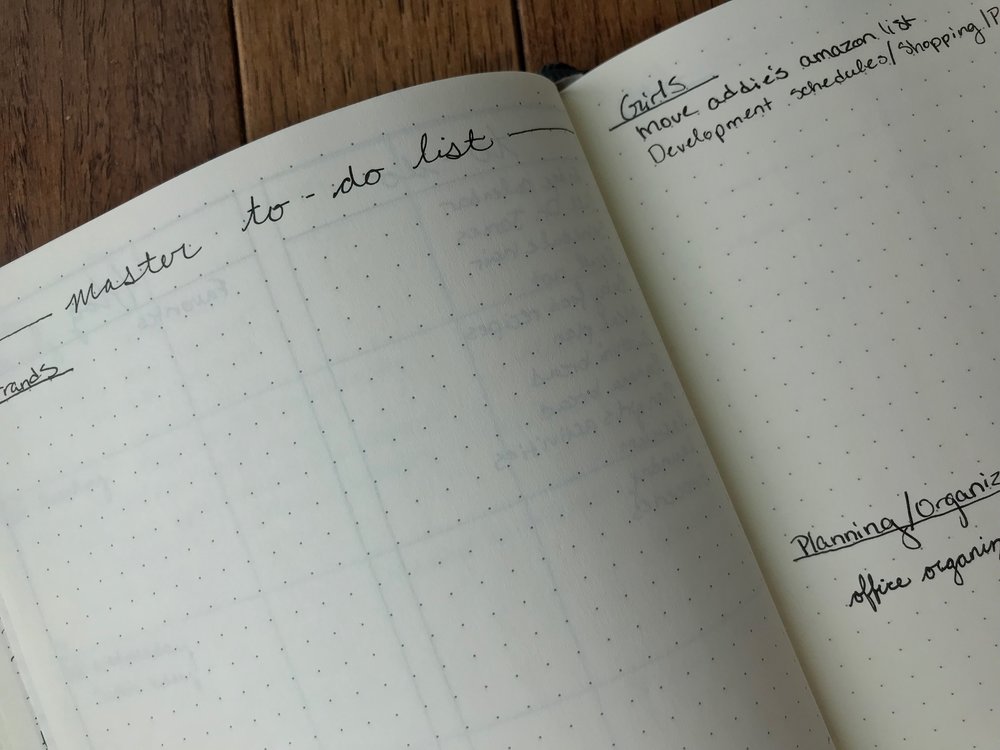 master to-do list
rands
Girls
move addie's amazon list
Development schedules/shopping/P
Planning/Organiz
office organin